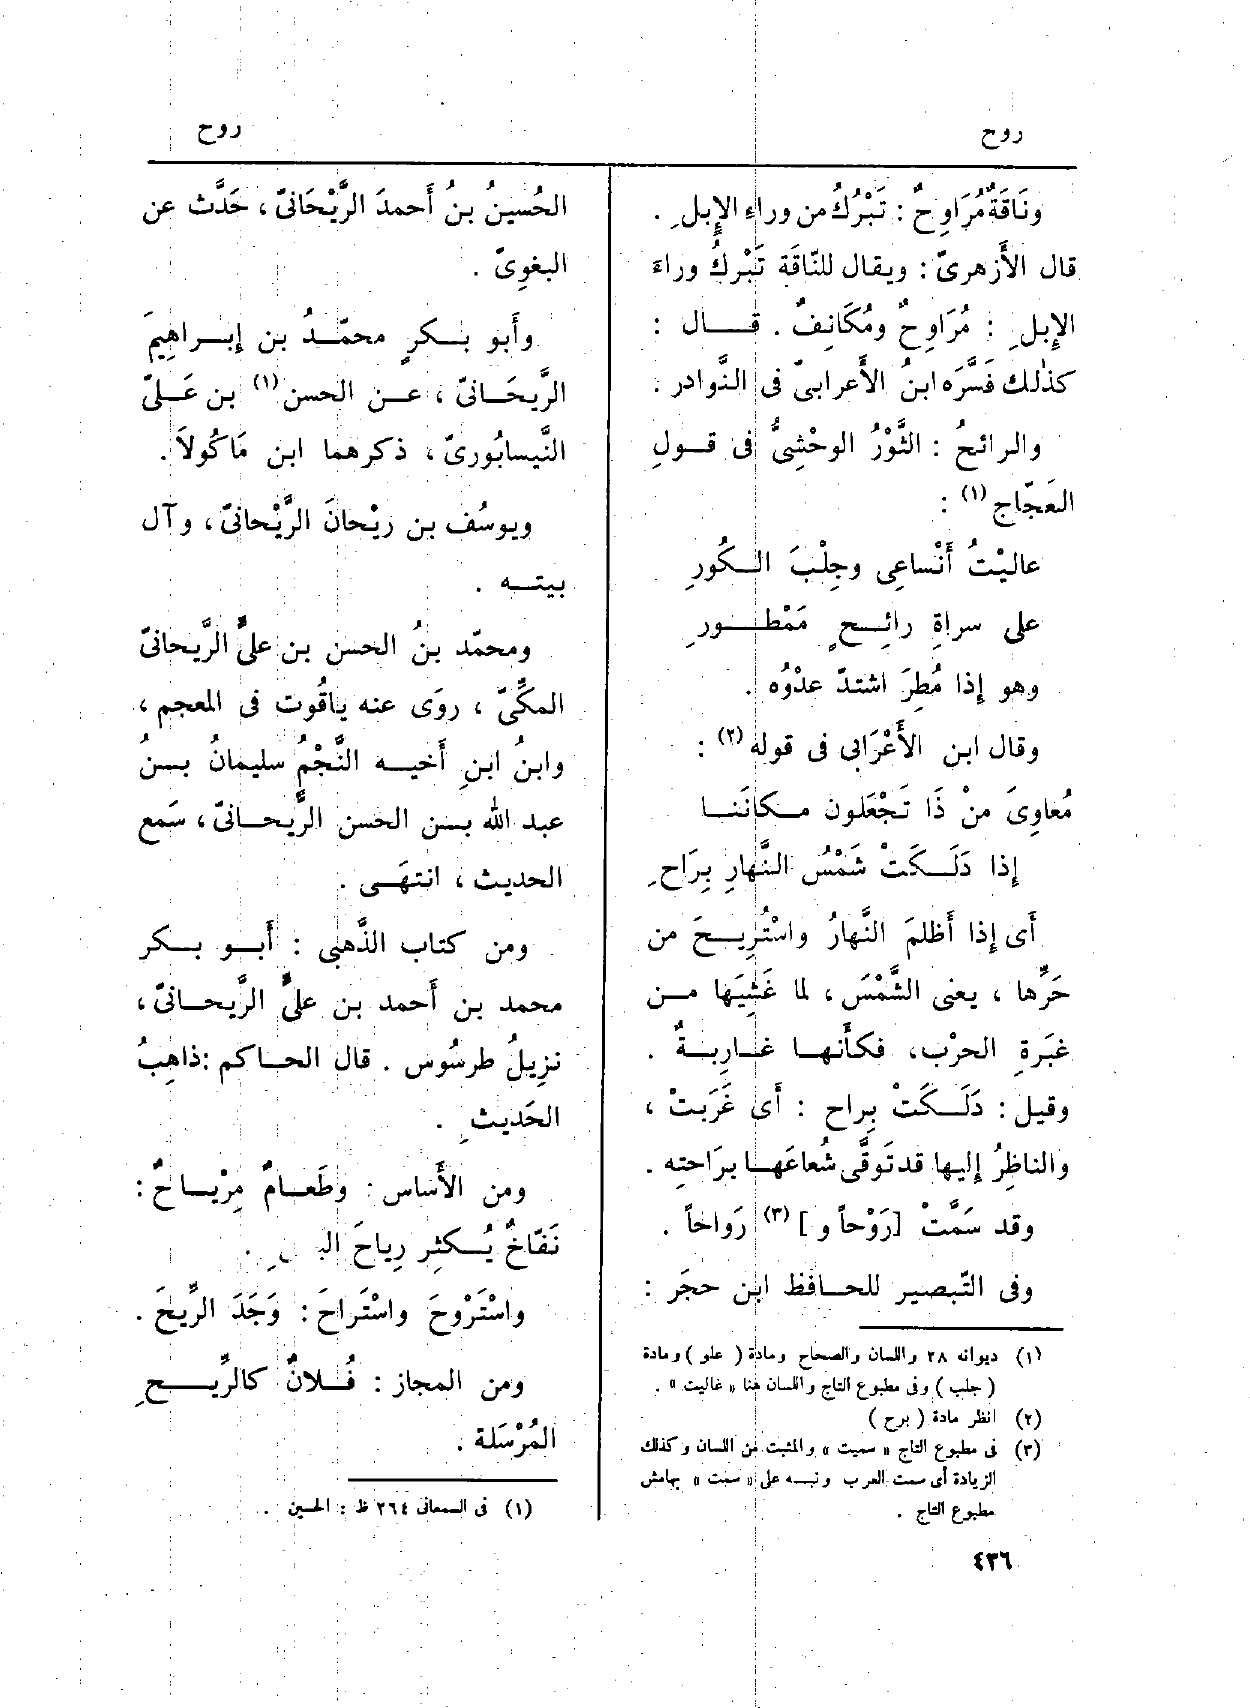 روح
روح
ونَاقَةٌ مُرَاوِحٌ : تَبْرُكُ من وراء الإِبلِ .
قال الأَزهرىّ : ويقال للنّاقَةِ تَبْرِكُ وراءَ
الإِبلِ : مُرَاوِحٌ ومُكَانِفٌ . قـــال :
كذٰلك فَسَّرَه ابنُ الأَعرابىّ فى النَّوادر .
والرائحُ : الثَّوْرُ الوحْشِىُّ فى قــولِ
العَجّاج (١) :
عاليْتُ أَنْساعِى وجِلْبَ الــكُورِ
على سراةِ رائِــحٍ مَمْطــورِ
وهو إِذا مُطِرَ اشتدّ عدْوُه .
وقال ابن الأَعْرَابى فى قوله (٢) :
مُعاوِىَ مَنْ ذَا تَجْعَلون مــكانَنــا
إِذا دَلَــكَتْ شَمْسُ النَّهارِ بِرَاحِ
أَى إِذا أَظلمَ النَّهارُ واسْتُرِيــحَ من
حَرِّها ، يعنى الشَّمْسَ ، لما غَشِيَها مــن
غبَرةِ الحرْب، فكأَنهــا غــارِبــةٌ .
وقيل : دَلَــكَتْ بِراح : أَى غَرَبَتْ ،
والناظِرُ إِليها قد تَوقَّى شُعاعَهــا بِرَاحتِه .
وقد سَمَّتْ [رَوْحاً و ] (٣) رَواحاً .
وفى التّبصير للحــافظ ابن حجَر :
(١) ديوانه ٢٨ واللسان والصحاح ومادة ( علو ) ومادة
( جلب ) وفى مطبوع التاج واللسان هنا « غاليت » .
(٢) انظر مادة ( برح )
(٣) فى مطبوع التاج « سميت » والمثبت من اللسان وكذلك
الزيادة أى سمت العرب ونبــه على « سمت » بهامش
مطبوع التاج .
٤٣٦
الحُسينُ بنُ أَحمدَ الرَّيْحَانىّ ، حَدَّث عن
البغوِىّ .
وأَبو بــكرٍ محمّــدُ بن إِبــراهِيمَ
الرَّيحَــانىّ ، عــن الحسن (١) بن عَــلىّ
النَّيسابُورىّ ، ذكرهما ابن مَاكُولاَ .
ويوسُف بن رَيْحانَ الرَّيْحانىّ ، وآل
بيتــه .
ومحمّد بنُ الحسن بن علىٍّ الرَّيحانىّ
المكِّىّ ، روَى عنه ياقُوت فى المعجم ،
وابنُ ابنِ أَخيــه النَّجْمُ سليمانُ بــنُ
عبد الله بــن الحسن الرَّيحــانىّ ، سَمع
الحديث ، انتهَــى .
ومن كتاب الذَّهبى : أَبــو بــكر
محمد بن أَحمد بن علىٍّ الرَّيحــانىّ ،
نزِيلُ طرسُوس . قال الحــاكم : ذاهِبُ
الحَديثِ .
ومن الأَساس : وطَعــامٌ مِرْيــاحٌ :
نَفّاخٌ يُــكثِر رِياحَ
واسْتَرْوحَ واسْتَراحَ : وَجَدَ الرِّيحَ .
ومن المجاز : فُــلانٌ كالرِّيــحِ
المُرْسَلة .
(١) فى السمعانى ٢٦٤ ظ : الحسين .